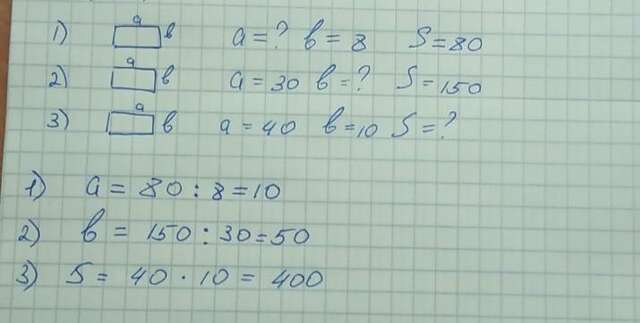 1) a в a = ? в = 8 S = 80
2) a в a = 30 в = ? S = 150
3) a в a = 40 в = 10 S = ?
1) a = 80 : 8 = 10
2) в = 150 : 30 = 50
3) S = 40 · 10 = 400